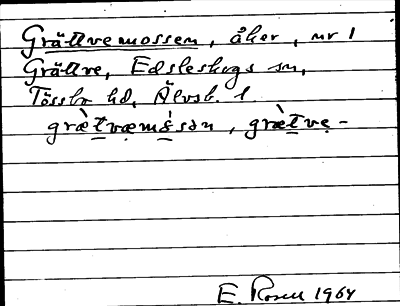 Grättvemossen, åker, nr 1
Grättve, Edsleskogs sn,
Tössbo hd, Älvsb. l.
græ̀tvæmɷ́sən, græ̀tvẹ-
E. Rosell 1964